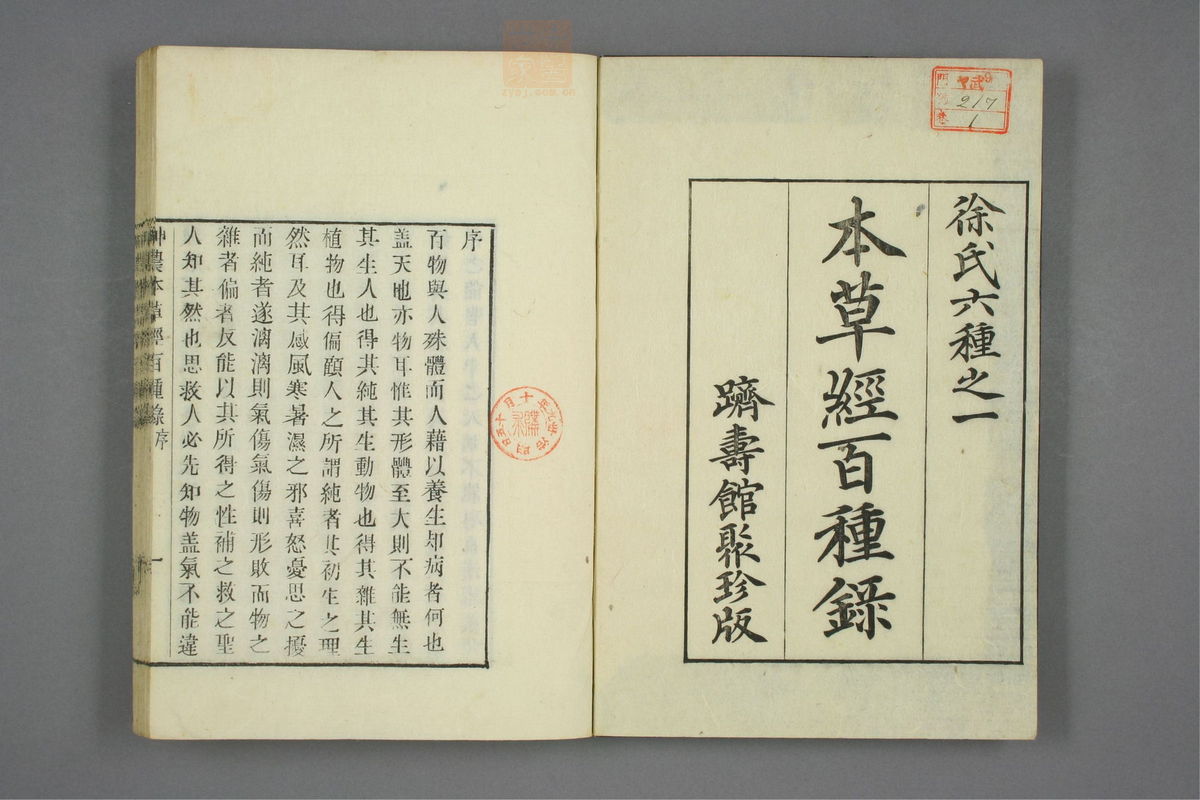 徐氏六種之一
本草經百種錄
躋壽館聚珍版
217
1
序
百物與人殊體而人藉以養生却病者何也
蓋天地亦物耳惟其形體至大則不能無生
其生人也得其純其生動物也得其雜其生
植物也得偏顧人之所謂純者其初生之理
然耳及其感風寒暑濕之邪喜怒憂思之擾
而純者遂漓漓則氣傷氣傷則形敗而物之
雜者偏者反能以其所得之性補之救之聖
人知其然也思救人必先知物蓋氣不能違
神農本草經百種錄序
一
zyej.com.cn